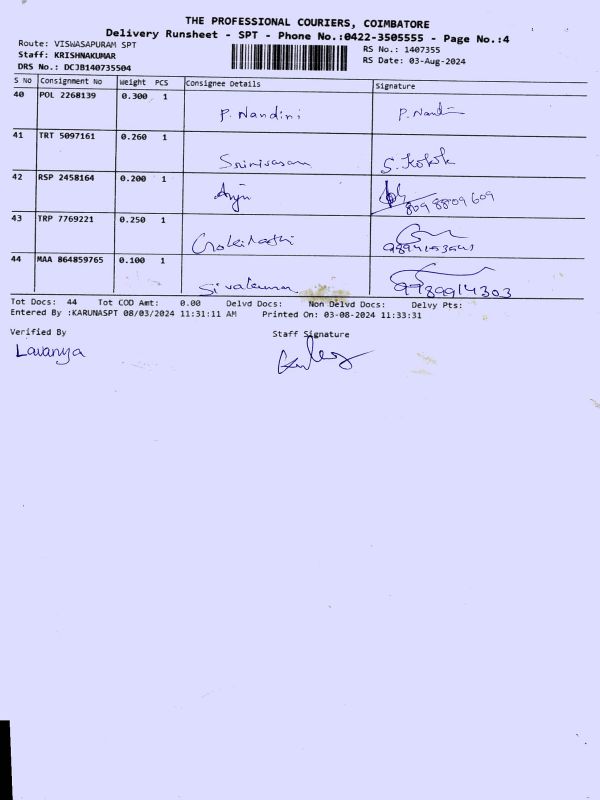 THE PROFESSIONAL COURIERS, COIMBATORE
Delivery Runsheet - SPT - Phone No.:0422-3505555 - Page No.:4
Route: VISWASAPURAM SPT RS No.: 1407355
Staff: KRISHNAKUMAR RS Date: 03-Aug-2024
DRS No.: DCJB140735504
S No Consignment No Weight PCS Consignee Details Signature
40 POL 2268139 0.300 1
P. Nandini P. Nandi
41 TRT 5097161 0.260 1
Srinivasan S.
42 RSP 2458164 0.200 1
Anju 809 8809 609
43 TRP 7769221 0.250 1
44 MAA 864859765 0.100 1
Sivakumar 9989914303
Tot Docs: 44 Tot COD Amt: 0.00 Delvd Docs: Non Delvd Docs: Delvy Pts:
Entered By :KARUNASPT 08/03/2024 11:31:11 AM Printed On: 03-08-2024 11:33:31
Verified By Staff Signature
Lavanya